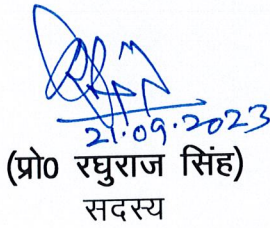 21.09.2023
(प्रो0 रघुराज सिंह)
सदस्य